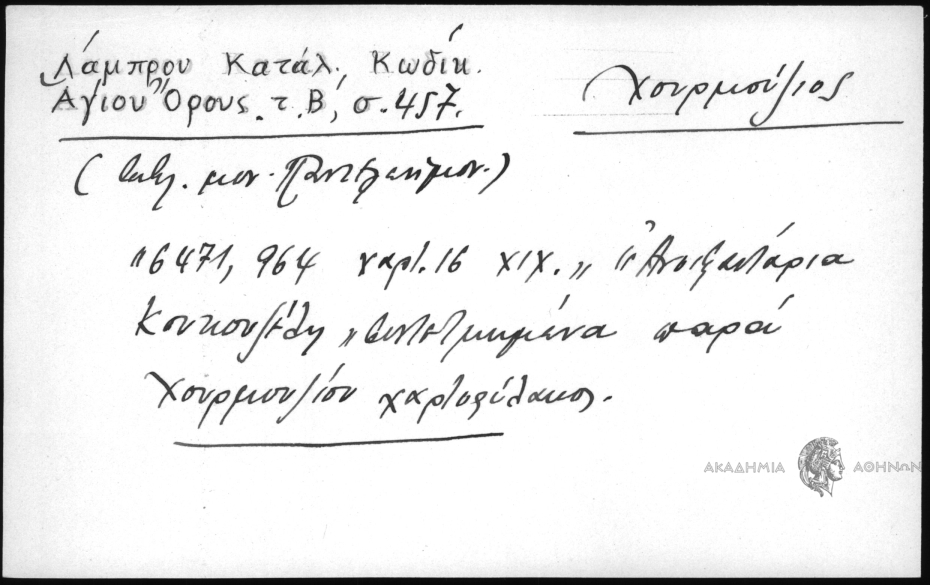 Λάμπρου Κατάλ., Κωδίκ.
Ἁγίου Ὄρους. τ. Β', σ. 457.
Χουρμούζιος
μον. Παντελεήμον.)
"6471, 964 χαρτ. 16 ΧΙΧ.„ "Ἀνοιξαντάρια
Κουκουζέλη „ συντετμημένα παρά
Χουρμουζίου χαρτοφύλακος.
ΑΚΑΔΗΜΙΑ ΑΘΗΝΩΝ